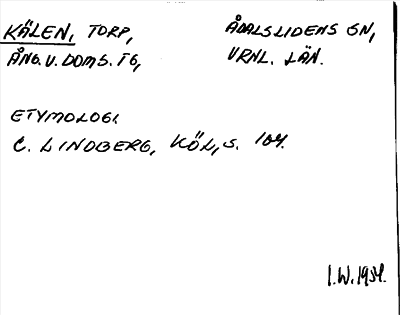 KÄLEN, TORP, ÅDALSLIDENS SN,
ÅNG.V.DOMS.TG, VRNL. LÄN.
ETYMOLOGI
C. LINDBERG, KÖL, S. 104.
I.W. 1934.